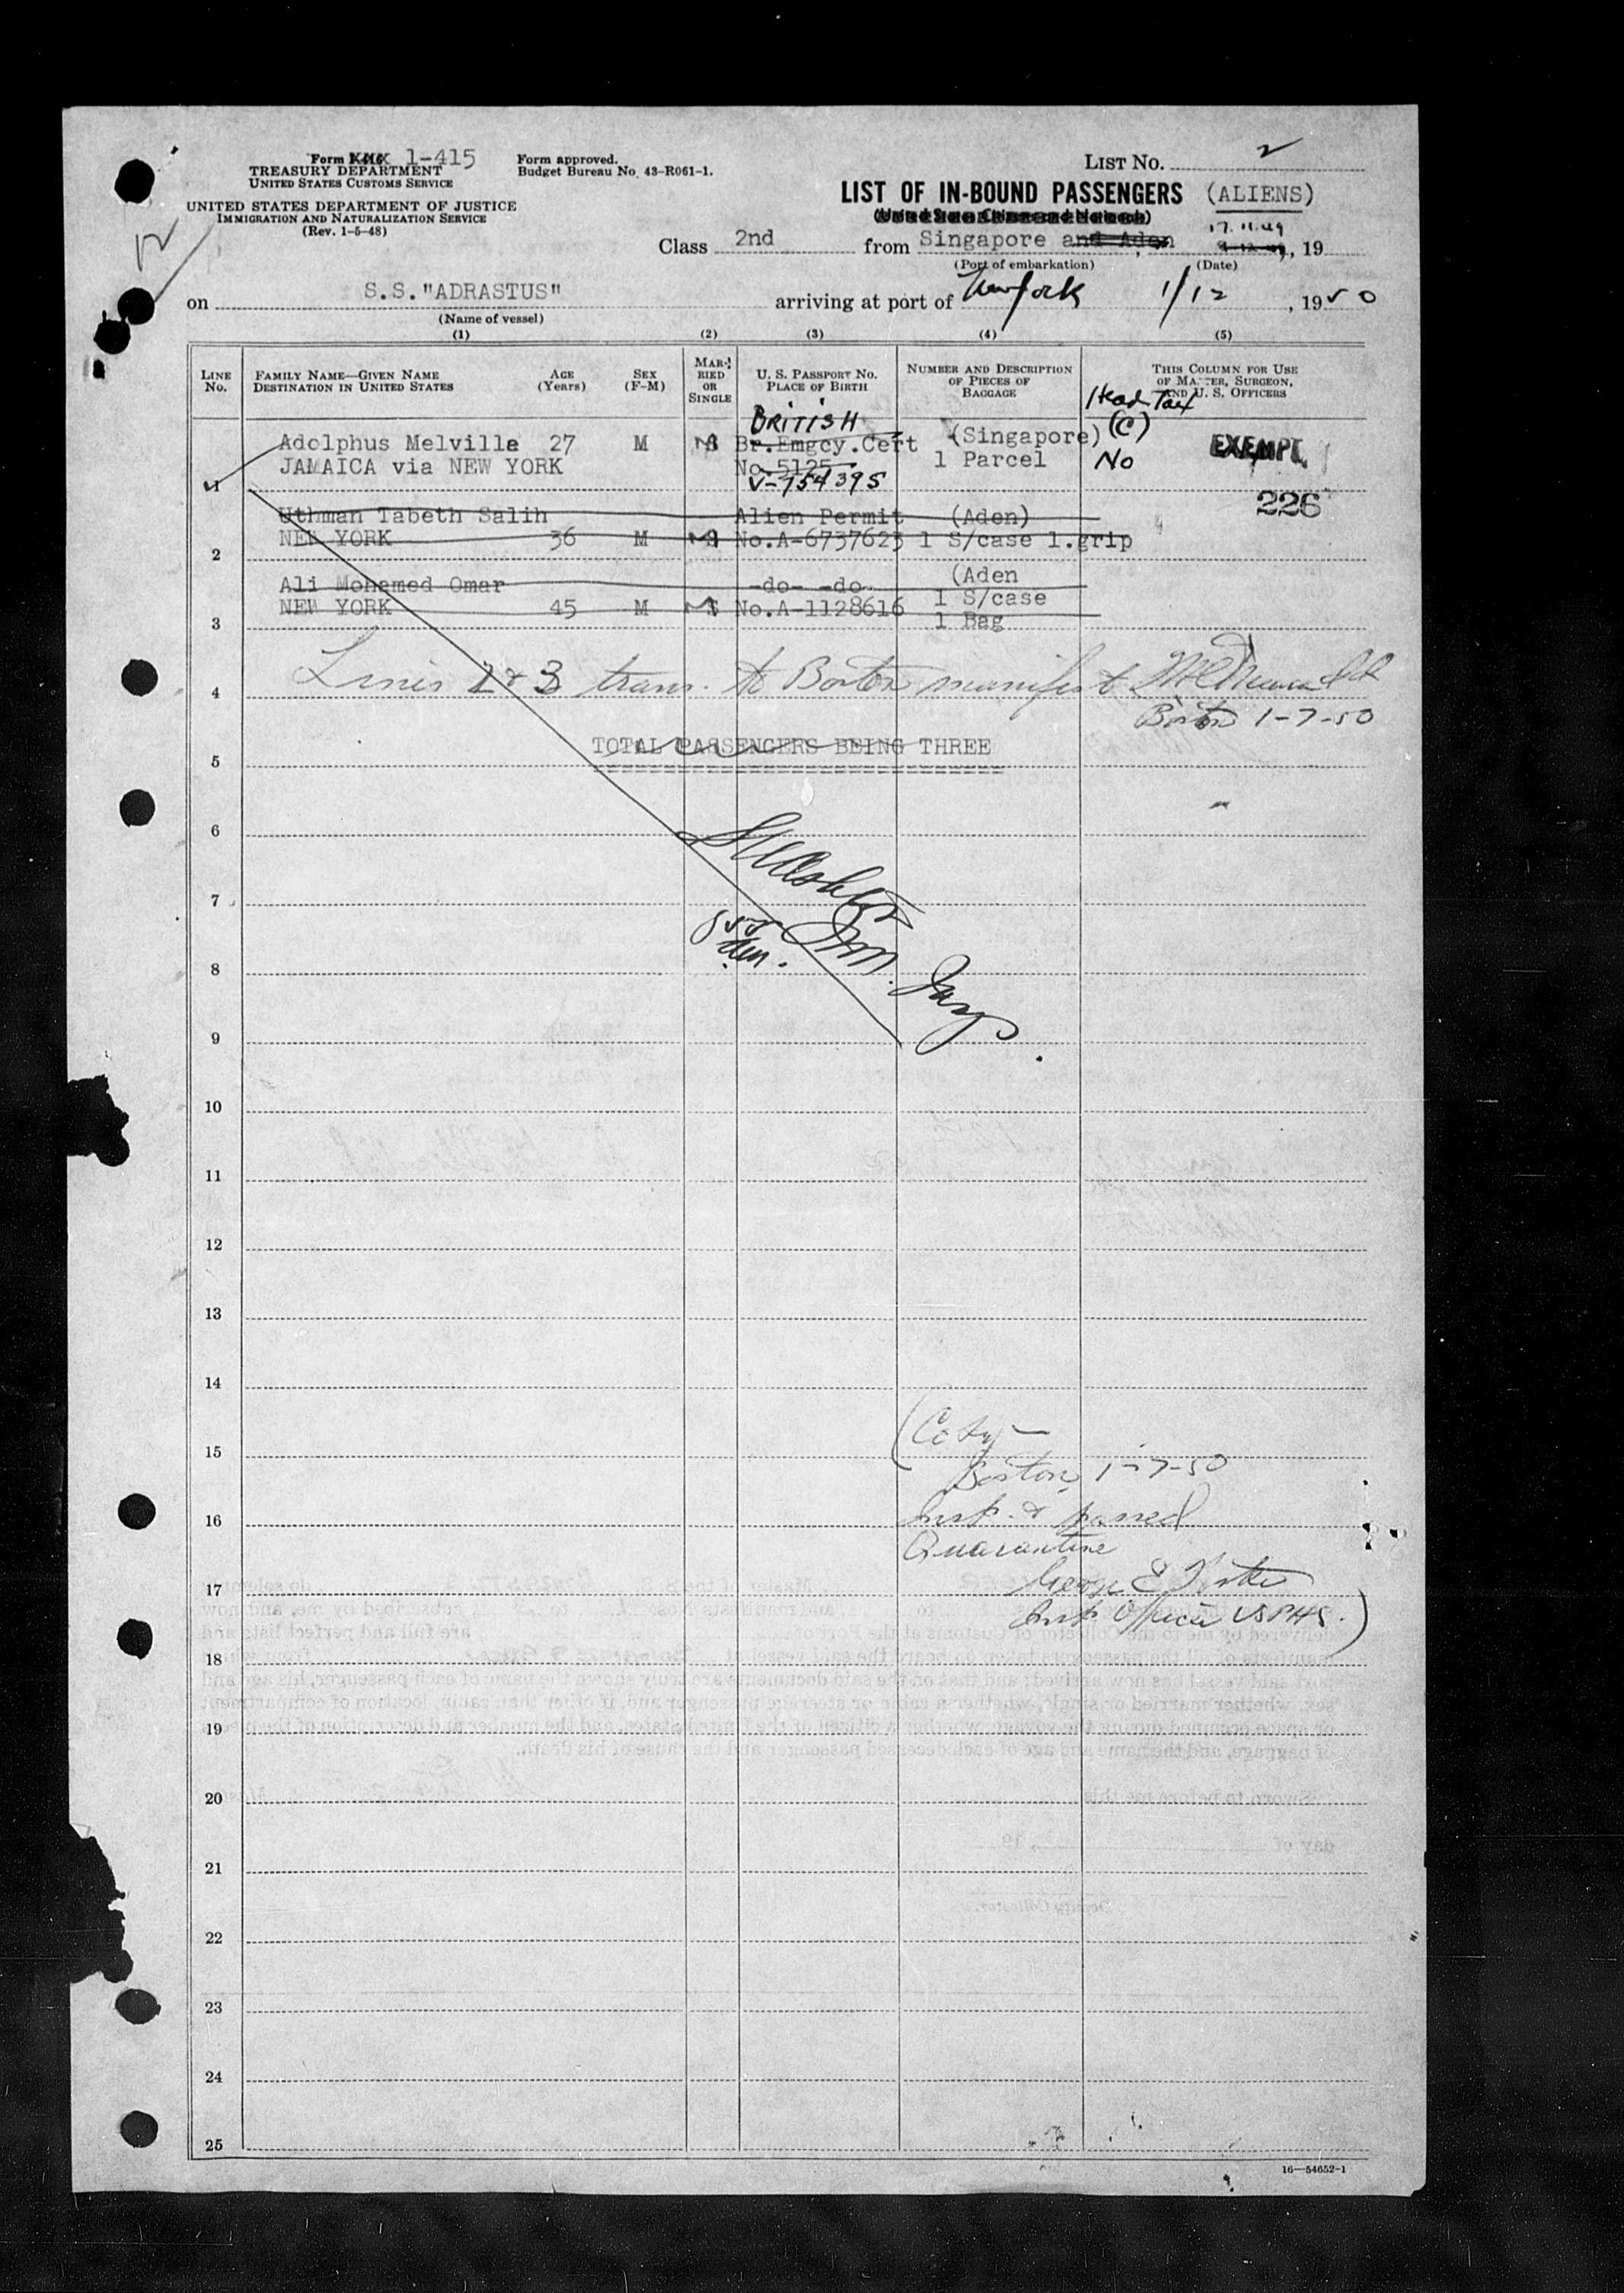 Form 1-415
TREASURY DEPARTMENT
UNITED STATES CUSTOMS SERVICE
UNITED STATES DEPARTMENT OF JUSTICE
IMMIGRATION AND NATURALIZATION SERVICE
(Rev. 1-5-48)
Form approved.
Budget Bureau No. 43-R061-1.
12
LIST No. 2
LIST OF IN-BOUND PASSENGERS (ALIENS)
17.11.49
Class 2nd from Singapore and Aden, 19
(Port of embarkation) (Date)
on S.S."ADRASTUS" arriving at port of New York 1/12, 1950
(Name of vessel)
(1) (2) (3) (4) (5)
LINE No.
FAMILY NAME—GIVEN NAME
DESTINATION IN UNITED STATES
AGE (Years)
SEX (F-M)
MARRIED OR SINGLE
U. S. PASSPORT NO.
PLACE OF BIRTH
NUMBER AND DESCRIPTION OF PIECES OF BAGGAGE
THIS COLUMN FOR USE OF MASTER, SURGEON, AND U. S. OFFICERS
Head Tax
BRITISH
Adolphus Melville 27 M S Br.Emgcy.Cert (Singapore) (C) EXEMPT
JAMAICA via NEW YORK No.5125 1 Parcel No
1 V-754395
226
Uthman Tabeth Salih Alien Permit (Aden)
NEW YORK 36 M No.A-6737623 1 S/case 1.grip
2
Ali Mohamed Omar -do- -do- (Aden
NEW YORK 45 M No.A-1128616 1 S/case
3 1 Bag
4 Lines 2 & 3 trans. to Boston manifest
Boston 1-7-50
TOTAL PASSENGERS BEING THREE
5
6
7
Imm. Insp.
8
9
10
11
12
13
14
(Copy —
15
Boston, 1-7-50
16 Insp. & passed
Quarantine
17 George E.
Insp. Officer USPHS.)
18
19
20
21
22
23
24
25
16—54652-1